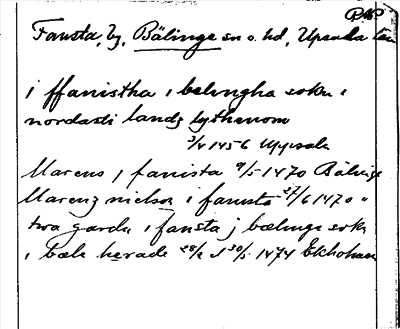 Fausta, by, Bälinge sn o. hd, Upsala län
i ffanistha i bælingha sokn i
nordasti landz lythenom
3/4 1456 Uppsala
Marcus j fanista 9/5 1470 Bälinge
Marenz nielsa i fanista 27/6 1470 "
twa garda i fansta j bælinge sokn
i bæla herade 28/2 30/5 1474 Ekholmen